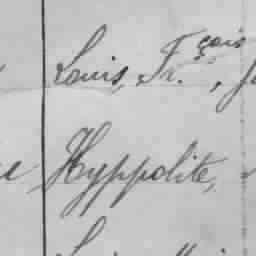 Louis, Fr.çois,
Hyppolite,